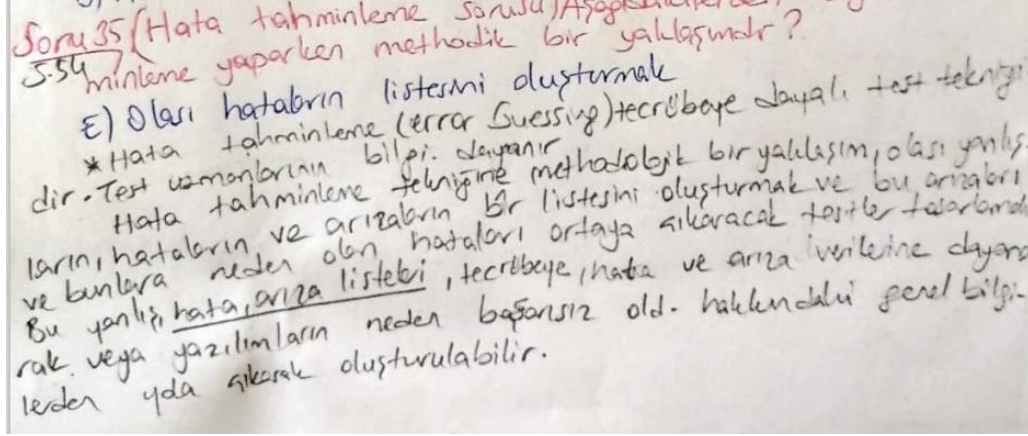 Soru 35 (Hata tahminleme sorusu) Aşağıdakilerden
S.54 minleme yaparken methodik bir yaklaşımdır?
E) Olası hataların listesini oluşturmak
* Hata tahminleme (error Guessing) tecrübeye dayalı test tekniği
dir. Test uzmanlarının bilgi. dayanır
Hata tahminleme tekniğine methodolojik bir yaklaşım, olası yanlış
ların, hataların ve arızaların bir listesini oluşturmak ve bu arızaları
ve bunlara neden olan hataları ortaya çıkaracak testler tasarlamak
Bu yanlış, hata, arıza listeleri, tecrübeye, hata ve arıza verilerine dayana
rak veya yazılımların neden başarısız old. hakkındaki genel bilgi-
lerden yda çıkarak oluşturulabilir.